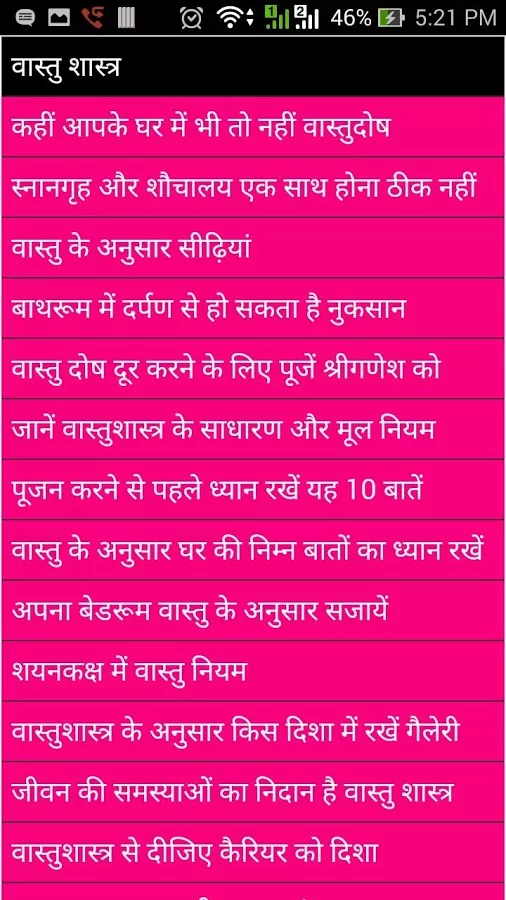 46% 5:21 PM
वास्तु शास्त्र
कहीं आपके घर में भी तो नहीं वास्तुदोष
स्नानगृह और शौचालय एक साथ होना ठीक नहीं
वास्तु के अनुसार सीढ़ियां
बाथरूम में दर्पण से हो सकता है नुकसान
वास्तु दोष दूर करने के लिए पूजें श्रीगणेश को
जानें वास्तुशास्त्र के साधारण और मूल नियम
पूजन करने से पहले ध्यान रखें यह 10 बातें
वास्तु के अनुसार घर की निम्न बातों का ध्यान रखें
अपना बेडरूम वास्तु के अनुसार सजायें
शयनकक्ष में वास्तु नियम
वास्तुशास्त्र के अनुसार किस दिशा में रखें गैलेरी
जीवन की समस्याओं का निदान है वास्तु शास्त्र
वास्तुशास्त्र से दीजिए कैरियर को दिशा